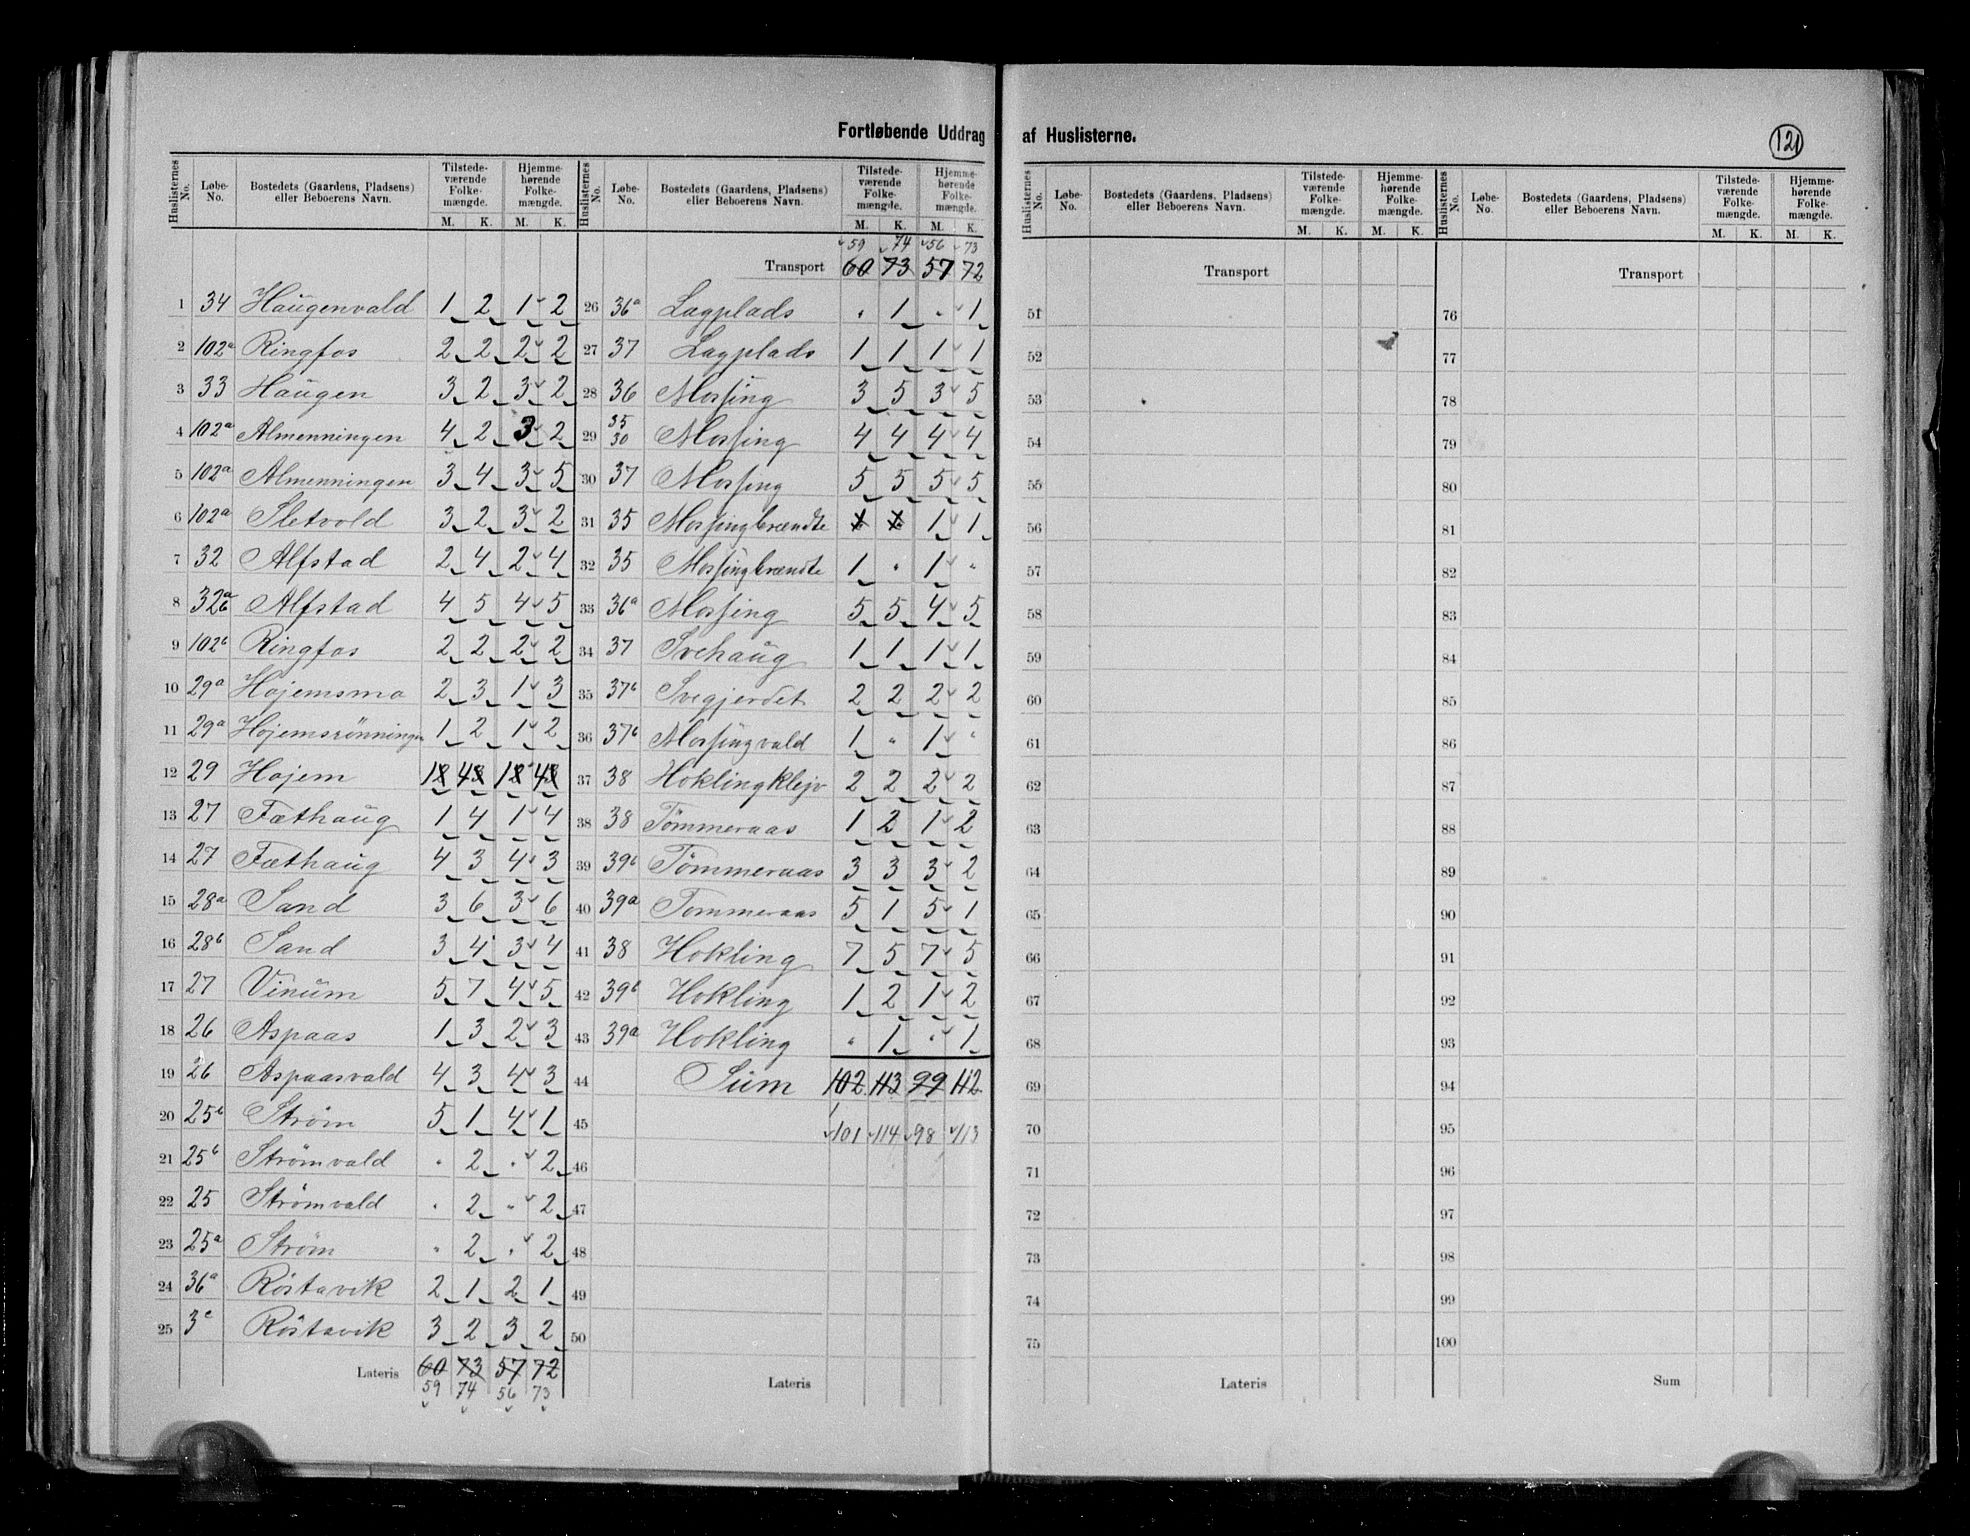 Fortløbende Uddrag af Huslisterne.
121
Huslisternes No. Løbe-No. Bostedets (Gaardens, Pladsens) eller Beboerens Navn. Tilstedeværende Folkemængde. M. K. Hjemmehørende Folkemængde. M. K.
1 34 Haugenvald 1 2 1 2
2 102a Ringfos 2 2 2 2
3 33 Haugen 3 2 3 2
4 102a Almenningen 4 2 3 2
5 102a Almenningen 3 4 3 5
6 102a Sletvold 3 2 3 2
7 32 Alfstad 2 4 2 4
8 32 Alfstad 4 5 4 5
9 102b Ringfos 2 2 2 2
10 29a Hojemsmo 2 3 1 3
11 29a Hojemsrønningen 1 2 1 2
12 29 Hojem
13 27 Fæthaug 1 4 1 4
14 27 Fæthaug 4 3 4 3
15 28a Sand 3 6 3 6
16 28b Sand 3 4 3 4
17 27 Vinum 5 7 4 5
18 26 Aspaas 1 3 2 3
19 26 Aspaasvald 4 3 4 3
20 25b Strøm 5 1 4 1
21 25b Strømvald " 2 " 2
22 25 Strømvald " 2 " 2
23 25a Strøm " 2 " 2
24 36a Röstavik 2 1 2 1
25 3 Röstavik 3 2 3 2
Lateris 60 73 57 72
59 74 56 73
Huslisternes No. Løbe-No. Bostedets (Gaardens, Pladsens) eller Beboerens Navn. Tilstedeværende Folkemængde. M. K. Hjemmehørende Folkemængde. M. K.
59 74 56 73
Transport 60 73 57 72
26 36a Lagplads " 1 " 1
27 37 Lagplads 1 1 1 1
28 36 Mossing 3 5 3 5
29 35 30 Mossing 4 4 4 4
30 37 Mossing 5 5 5 5
31 35 Mossingbrændte 1 1
32 35 Mossingbrændte 1 " 1 "
33 36a Mossing 5 5 4 5
34 37 Svehaug 1 1 1 1
35 37b Svegjerdet 2 2 2 2
36 37b Mossingvald 1 " 1 "
37 38 Hoklingklejv 2 2 2 2
38 38 Tömmeraas 1 2 1 2
39 39b Tömmeraas 3 3 3 2
40 39a Tommeraas 5 1 5 1
41 38 Hokling 7 5 7 5
42 39b Hokling 1 2 1 2
43 39a Hokling " 1 " 1
44 Sum 102 113 99 112
45 101 114 98 113
46
47
48
49
50
Lateris
Huslisternes No. Løbe-No. Bostedets (Gaardens, Pladsens) eller Beboerens Navn. Tilstedeværende Folkemængde. M. K. Hjemmehørende Folkemængde. M. K.
Transport
51
52
53
54
55
56
57
58
59
60
61
62
63
64
65
66
67
68
69
70
71
72
73
74
75
Lateris
Huslisternes No. Løbe-No. Bostedets (Gaardens, Pladsens) eller Beboerens Navn. Tilstedeværende Folkemængde. M. K. Hjemmehørende Folkemængde. M. K.
Transport
76
77
78
79
80
81
82
83
84
85
86
87
88
89
90
91
92
93
94
95
96
97
98
99
100
Sum